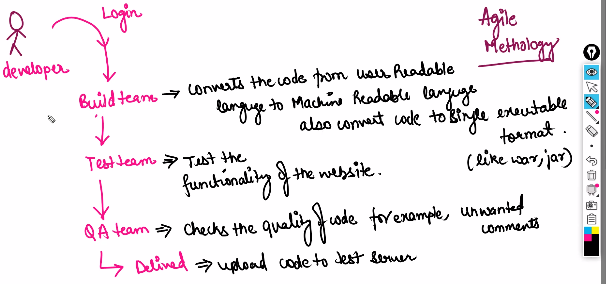 Login
Agile
Methalogy
developer
Build team → converts the code from user Readable
languge to Machine Readable languge
also convert code to single executable
format.
(like war, jar)
Test team ⇒ Test the
functionality of the website.
QA team ⇒ Checks the quality of code for example, unwanted
comments
⇒ upload code to test server